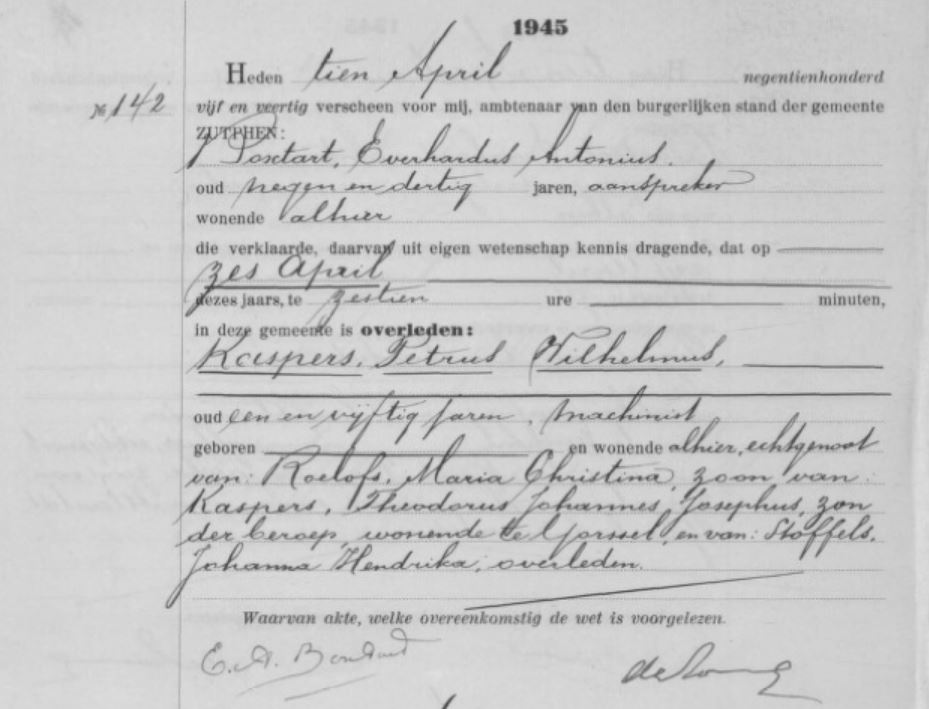 1945
Heden tien April negentienhonderd
№ 142
vijf en veertig verscheen voor mij, ambtenaar van den burgerlijken stand der gemeente
ZUTPHEN:
Everhardus Antonius.
oud negen en dertig jaren, aanspreker
wonende alhier
die verklaarde, daarvan uit eigen wetenschap kennis dragende, dat op
zes April
dezes jaars, te zestien ure minuten,
in deze gemeente is overleden:
Kaspers, Petrus Wilhelmus,
oud een en vijftig jaren, machinist
geboren en wonende alhier, echtgenoot
van: Roelofs, Maria Christina, zoon van:
Kaspers, Theodorus Johannes, Josephus, zon
der beroep, wonende te Gorssel, en van: Stoffels,
Johanna Hendrika, overleden.
Waarvan akte, welke overeenkomstig de wet is voorgelezen.
E. A.
de